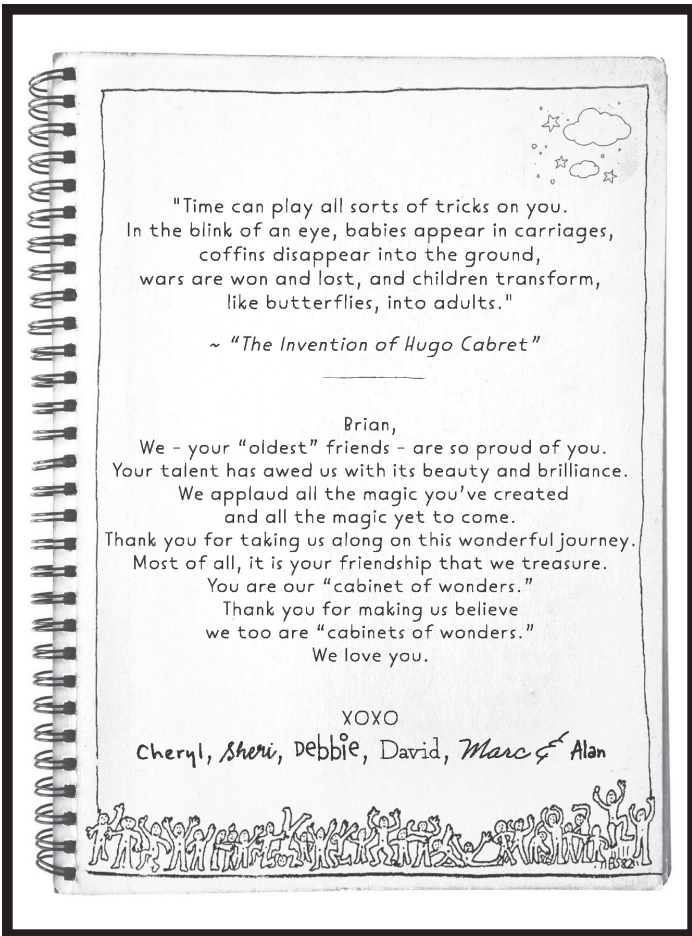 "Time can play all sorts of tricks on you.
In the blink of an eye, babies appear in carriages,
coffins disappear into the ground,
wars are won and lost, and children transform,
like butterflies, into adults."
~ “The Invention of Hugo Cabret”
Brian,
We - your “oldest” friends - are so proud of you.
Your talent has awed us with its beauty and brilliance.
We applaud all the magic you’ve created
and all the magic yet to come.
Thank you for taking us along on this wonderful journey.
Most of all, it is your friendship that we treasure.
You are our “cabinet of wonders.”
Thank you for making us believe
we too are “cabinets of wonders.”
We love you.
XOXO
Cheryl, Sheri, Debbie, David, Marc & Alan